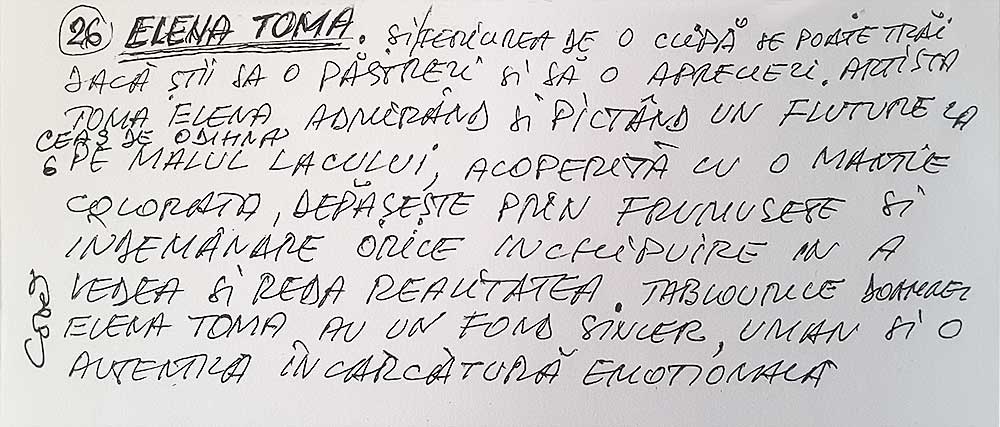 26 ELENA TOMA. FERICIREA DE O CLIPĂ SE POATE TRĂI
DACĂ ȘTII SA O PĂSTREZI SI SĂ O APRECIEZI. ARTISTA
TOMA ELENA ADMIRÂND SI PICTÂND UN FLUTURE LA
CEAS DE ODIHNA
6 PE MALUL LACULUI, ACOPERITĂ CU O MANTIE
COLORATA, DEPĂȘEȘTE PRIN FRUMUSEȚE SI
INDEMÂNARE ORICE INCHIPUIRE IN A
VEDEA SI REDA REALITATEA. TABLOURILE DOAMNEI
ELENA TOMA AU UN FOND SINCER, UMAN SI O
AUTENTICA ÎNCĂRCĂTURĂ EMOTIONALA